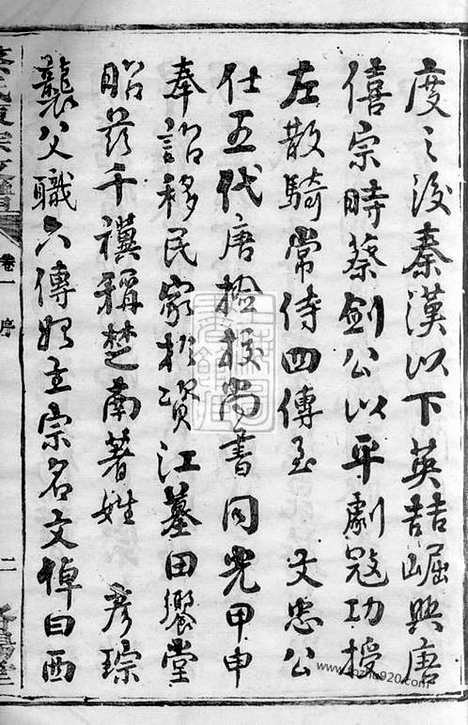 度之後秦漢以下英喆崛興唐
僖宗時蔡劍公以平劇寇功授
左散騎常侍四傳至 文忠公
仕五代唐撿挍尚書同光甲申
奉詔移民家於資江墓田饗堂
昭茲千禩稱楚南著姓 彥琮
襲父職六傳始主宗名文倬曰西
卷一 序
二
www.kongzhu920.com